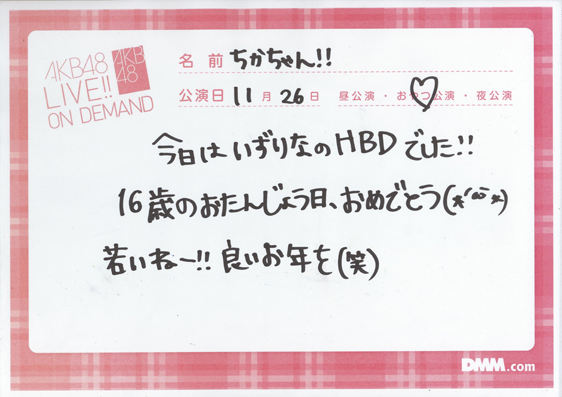 AKB48
LIVE!!
ON DEMAND
AKB
48
名前 ちかちゃん!!
公演日 11月26日 昼公演・おやつ公演・夜公演
今日はいずりなのHBDでした!!
16歳のおたんじょう日、おめでとう(*´ω`*)
若いねー!! 良いお年を(笑)
DMM.com